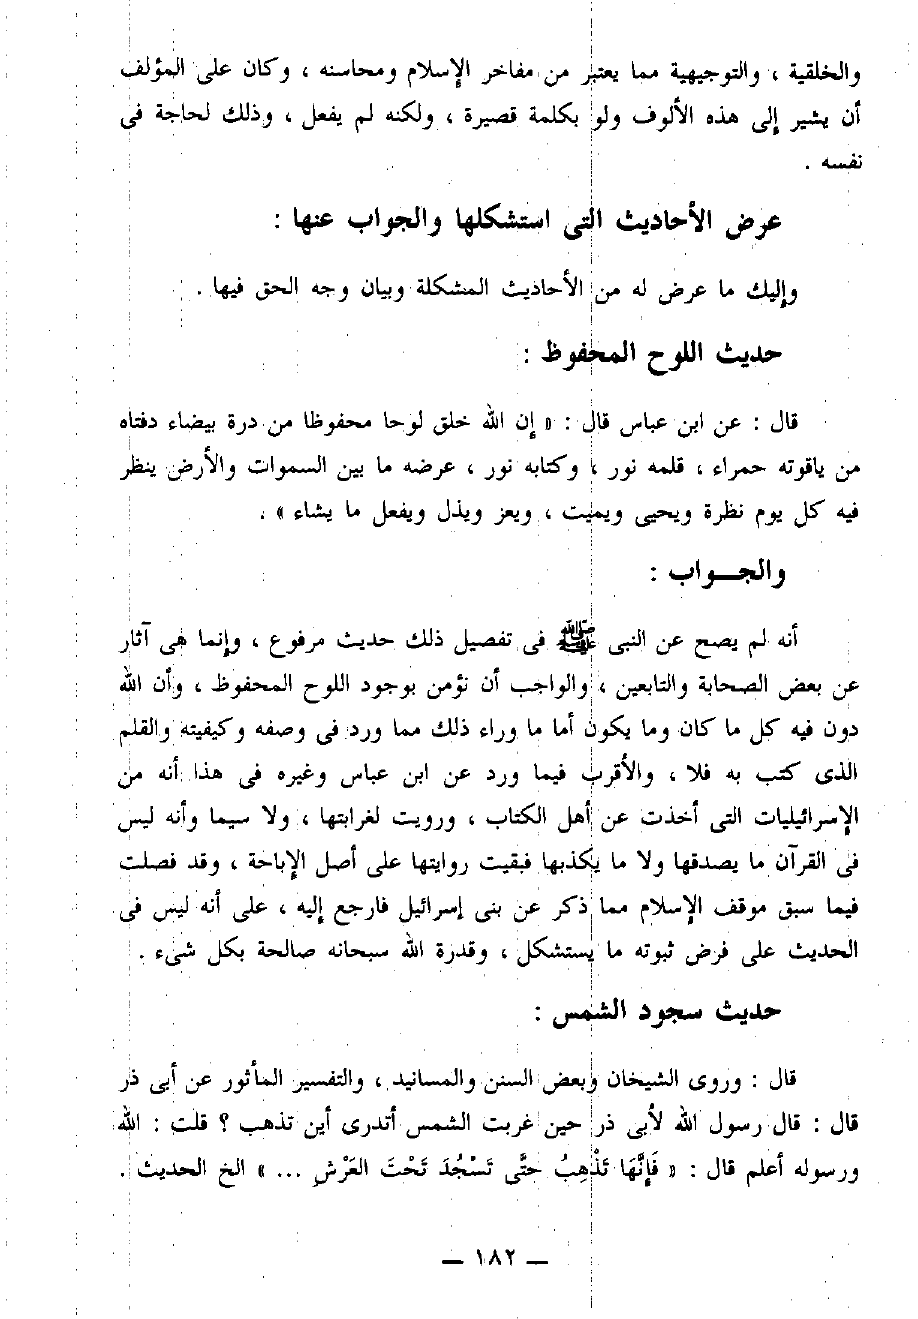 والخلقية ، والتوجيهية مما يعتبر من مفاخر الإسلام ومحاسنه ، وكان على المؤلف
أن يشير إلى هذه الألوف ولو بكلمة قصيرة ، ولكنه لم يفعل ، وذلك لحاجة فى
نفسه .
عرض الأحاديث التى استشكلها والجواب عنها :
وإليك ما عرض له من الأحاديث المشكلة وبيان وجه الحق فيها .
حديث اللوح المحفوظ :
قال : عن ابن عباس قال : « إن الله خلق لوحا محفوظا من درة بيضاء دفتاه
من ياقوته حمراء ، قلمه نور ، وكتابه نور ، عرضه ما بين السموات والأرض ينظر
فيه كل يوم نظرة ويحيى ويميت ، ويعز ويذل ويفعل ما يشاء » .
والجـــواب :
أنه لم يصح عن النبى ﷺ فى تفصيل ذلك حديث مرفوع ، وإنما هى آثار
عن بعض الصحابة والتابعين ، والواجب أن نؤمن بوجود اللوح المحفوظ ، وأن الله
دون فيه كل ما كان وما يكون أما ما وراء ذلك مما ورد فى وصفه وكيفيته والقلم
الذى كتب به فلا ، والأقرب فيما ورد عن ابن عباس وغيره فى هذا أنه من
الإسرائيليات التى أخذت عن أهل الكتاب ، ورويت لغرابتها ، ولا سيما وأنه ليس
فى القرآن ما يصدقها ولا ما يكذبها فبقيت روايتها على أصل الإباحة ، وقد فصلت
فيما سبق موقف الإسلام مما ذكر عن بنى إسرائيل فارجع إليه ، على أنه ليس فى
الحديث على فرض ثبوته ما يستشكل ، وقدرة الله سبحانه صالحة بكل شىء .
حديث سجود الشمس :
قال : وروى الشيخان وبعض السنن والمسانيد ، والتفسير المأثور عن أبى ذر
قال : قال رسول الله لأبى ذر حين غربت الشمس أتدرى أين تذهب ؟ قلت : الله
ورسوله أعلم قال : « فَإِنَّهَا تَذْهِبُ حتَّى تَسْجُدَ تَحْتَ العَرْشِ ... » الخ الحديث .
— ١٨٢ —